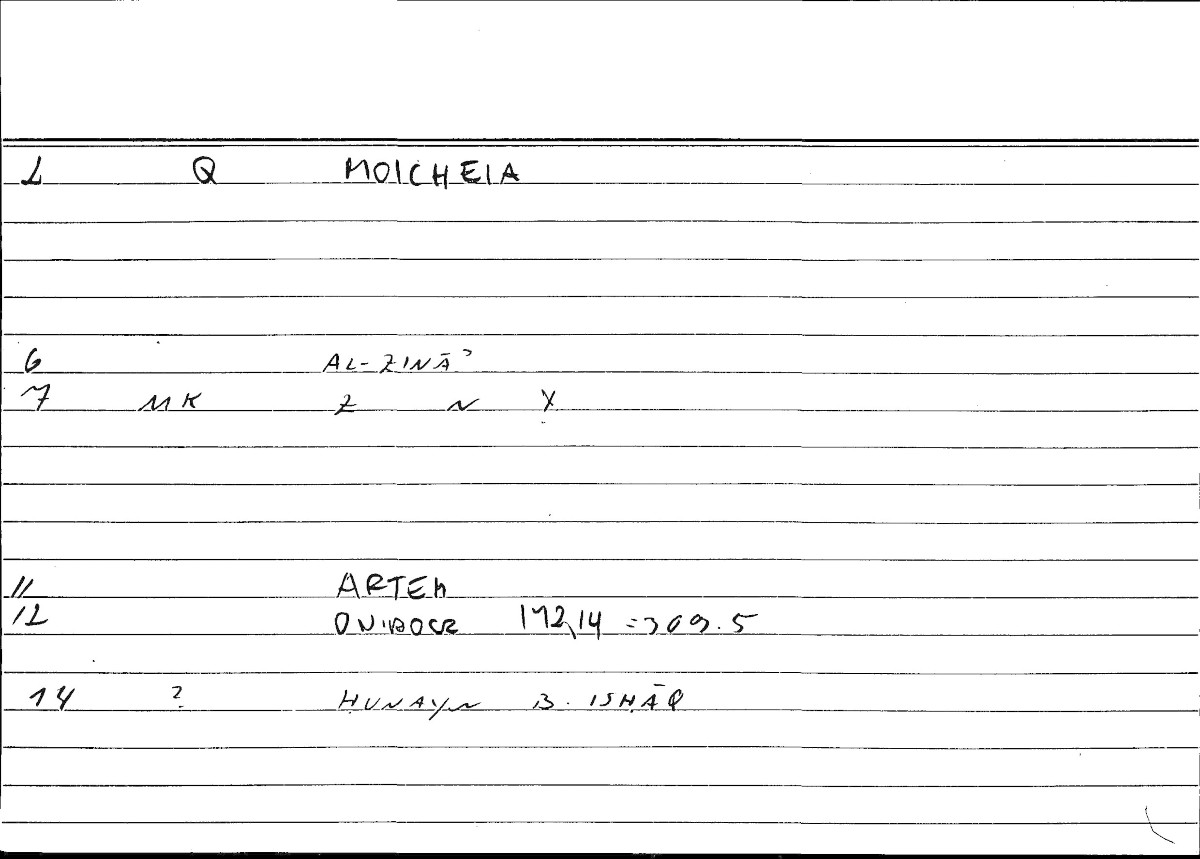 L Q MOICHEIA
6 AL-ZINĀʾ
7 MK Z N Y
11 ARTEM
12 ONIROCR 172,14 = 309.5
14 ? ḤUNAYN B. ISḤĀQ